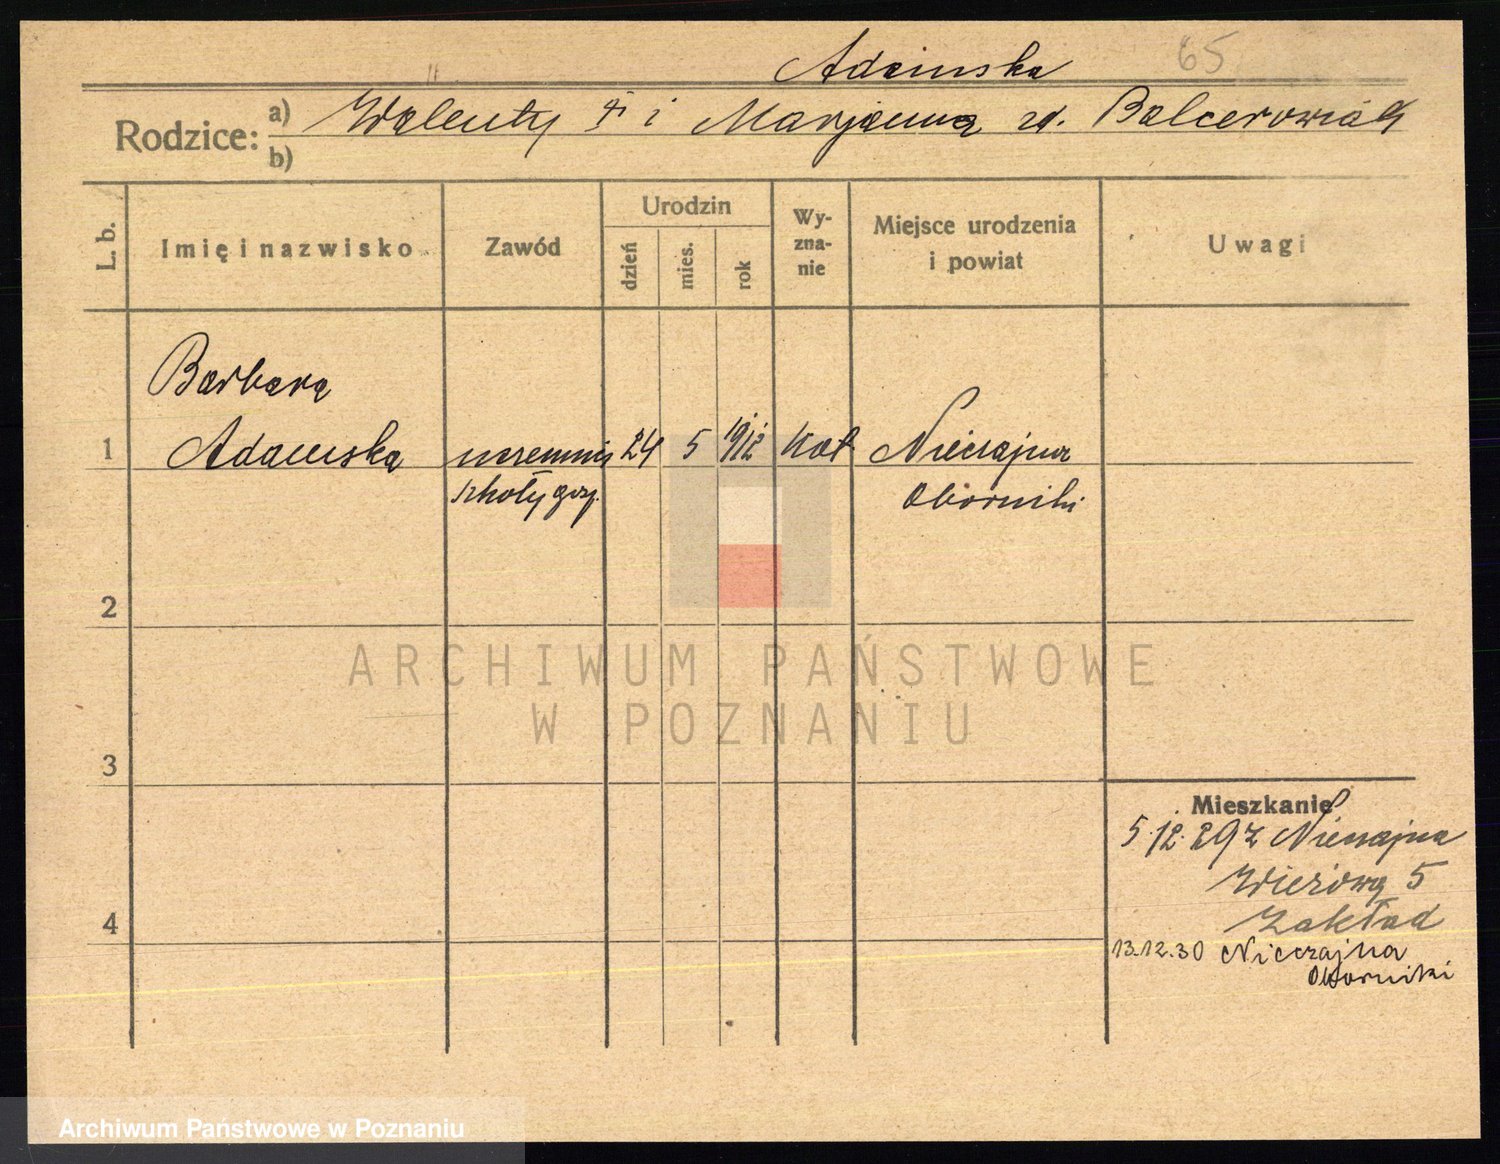 Adamska 65
Rodzice: a) Walenty i Marjanna zd. Balcerowiak
b)
L. b. Imię i nazwisko Zawód Urodzin dzień mies. rok Wyznanie Miejsce urodzenia i powiat Uwagi
Barbara
1 Adamska uczennica 24 5 1912 kat Nieczajna
szkoły gosp. Oborniki
2
ARCHIWUM PAŃSTWOWE
W POZNANIU
3
Mieszkanie
5.12.29 z Nieczajna
Wieżowa 5
Zakład
4
13.12.30 Nieczajna
Oborniki
Archiwum Państwowe w Poznaniu